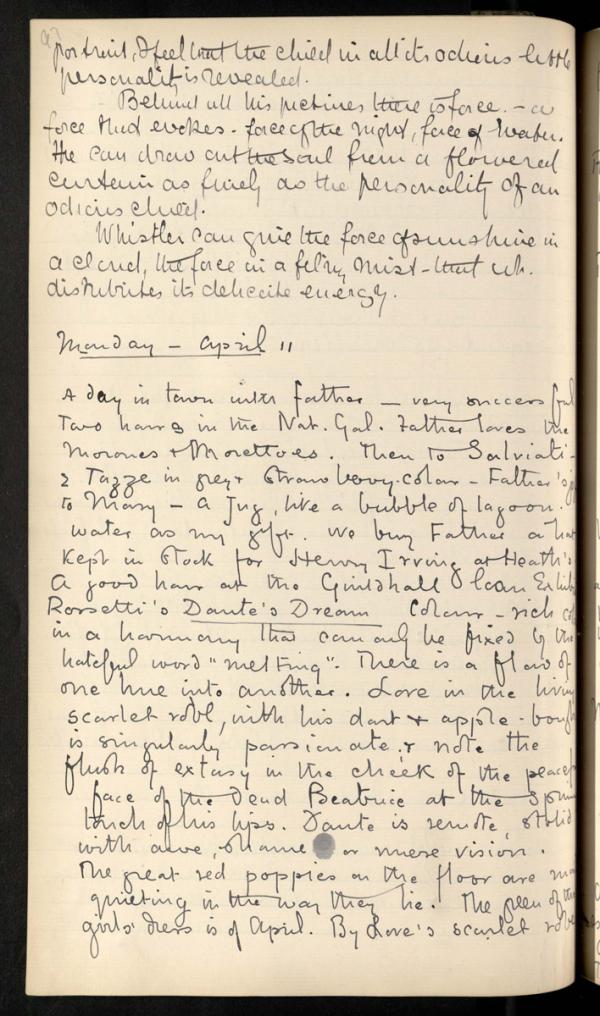 portrait, I feel that the child in all its odious little
personality is revealed.
Behind all his pictures there is force. – a
force that evokes – force of the night, force of water.
He can draw out the soul from a flowered
curtain as finely as the personality of an
odious child.
Whistler can give the force of sunshine in
a cloud, the force in a filmy mist – that wh.
distributes its delicate energy.
Monday – April 11
A day in town with father – very successful
Two hours in the Nat. Gal. Father loves the
Morones & Morettoes. Then to Salviati –
2 Tazze in grey & strawberry-colour – Father's
to Mary – A Jug, like a bubble of lagoon-
water as my gift. We buy Father a hat
kept in stock for Henry Irving at Heath's
A good hour at the Guildhall Loan Exhib
Rossetti's Dante's Dream Colour – rich
in a harmony that can only be fixed by the
hateful word "melting". There is a flow of
one hue into another. Love in the living
scarlet robe, with his dart & apple-bough
is singularly passionate. & note the
flush of extasy in the cheek of the peaceful
face of the dead Beatrice at the
touch of his lips. Dante is remote, stolid
with awe, shame or mere vision.
The great red poppies on the floor are
quieting in the way they lie. The green of the
girls' dress is of April. By Love's scarlet robe